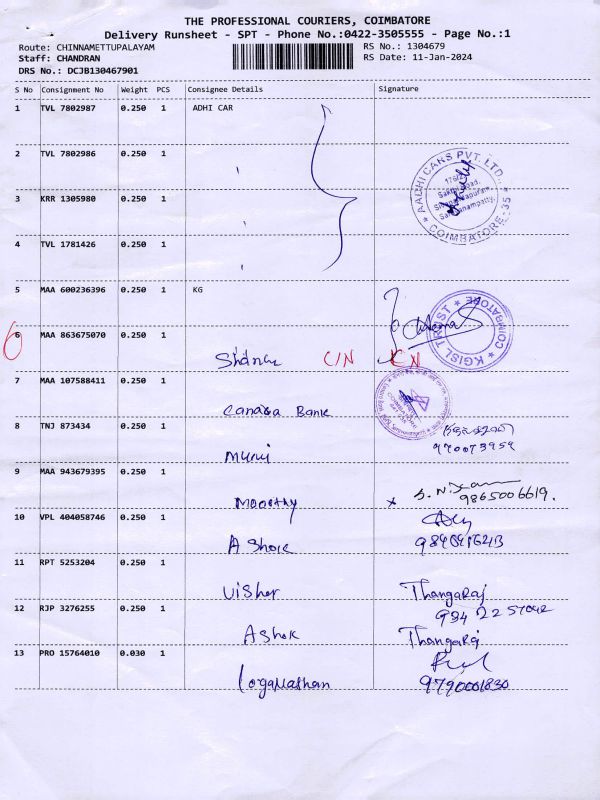 THE PROFESSIONAL COURIERS, COIMBATORE
Delivery Runsheet - SPT - Phone No.:0422-3505555 - Page No.:1
Route: CHINNAMETTUPALAYAM RS No.: 1304679
Staff: CHANDRAN RS Date: 11-Jan-2024
DRS No.: DCJB130467901
S No Consignment No Weight PCS Consignee Details Signature
1 TVL 7802987 0.250 1 ADHI CAR
2 TVL 7802986 0.250 1
AADHI CARS PVT. LTD.,
COIMBATORE - 35
3 KRR 1305980 0.250 1
4 TVL 1781426 0.250 1
5 MAA 600236396 0.250 1 KG
KGISL TRUST COIMBATORE
6 MAA 863675070 0.250 1
6 C/N CN
7 MAA 107588411 0.250 1
Canara Bank
8 TNJ 873434 0.250 1
9 MAA 943679395 0.250 1
Moorthy 9865006619.
10 VPL 404058746 0.250 1
Ashok
11 RPT 5253204 0.250 1
Thangaraj
12 RJP 3276255 0.250 1
Ashok Thangaraj
13 PRO 15764010 0.030 1
Loganathan 9790001830